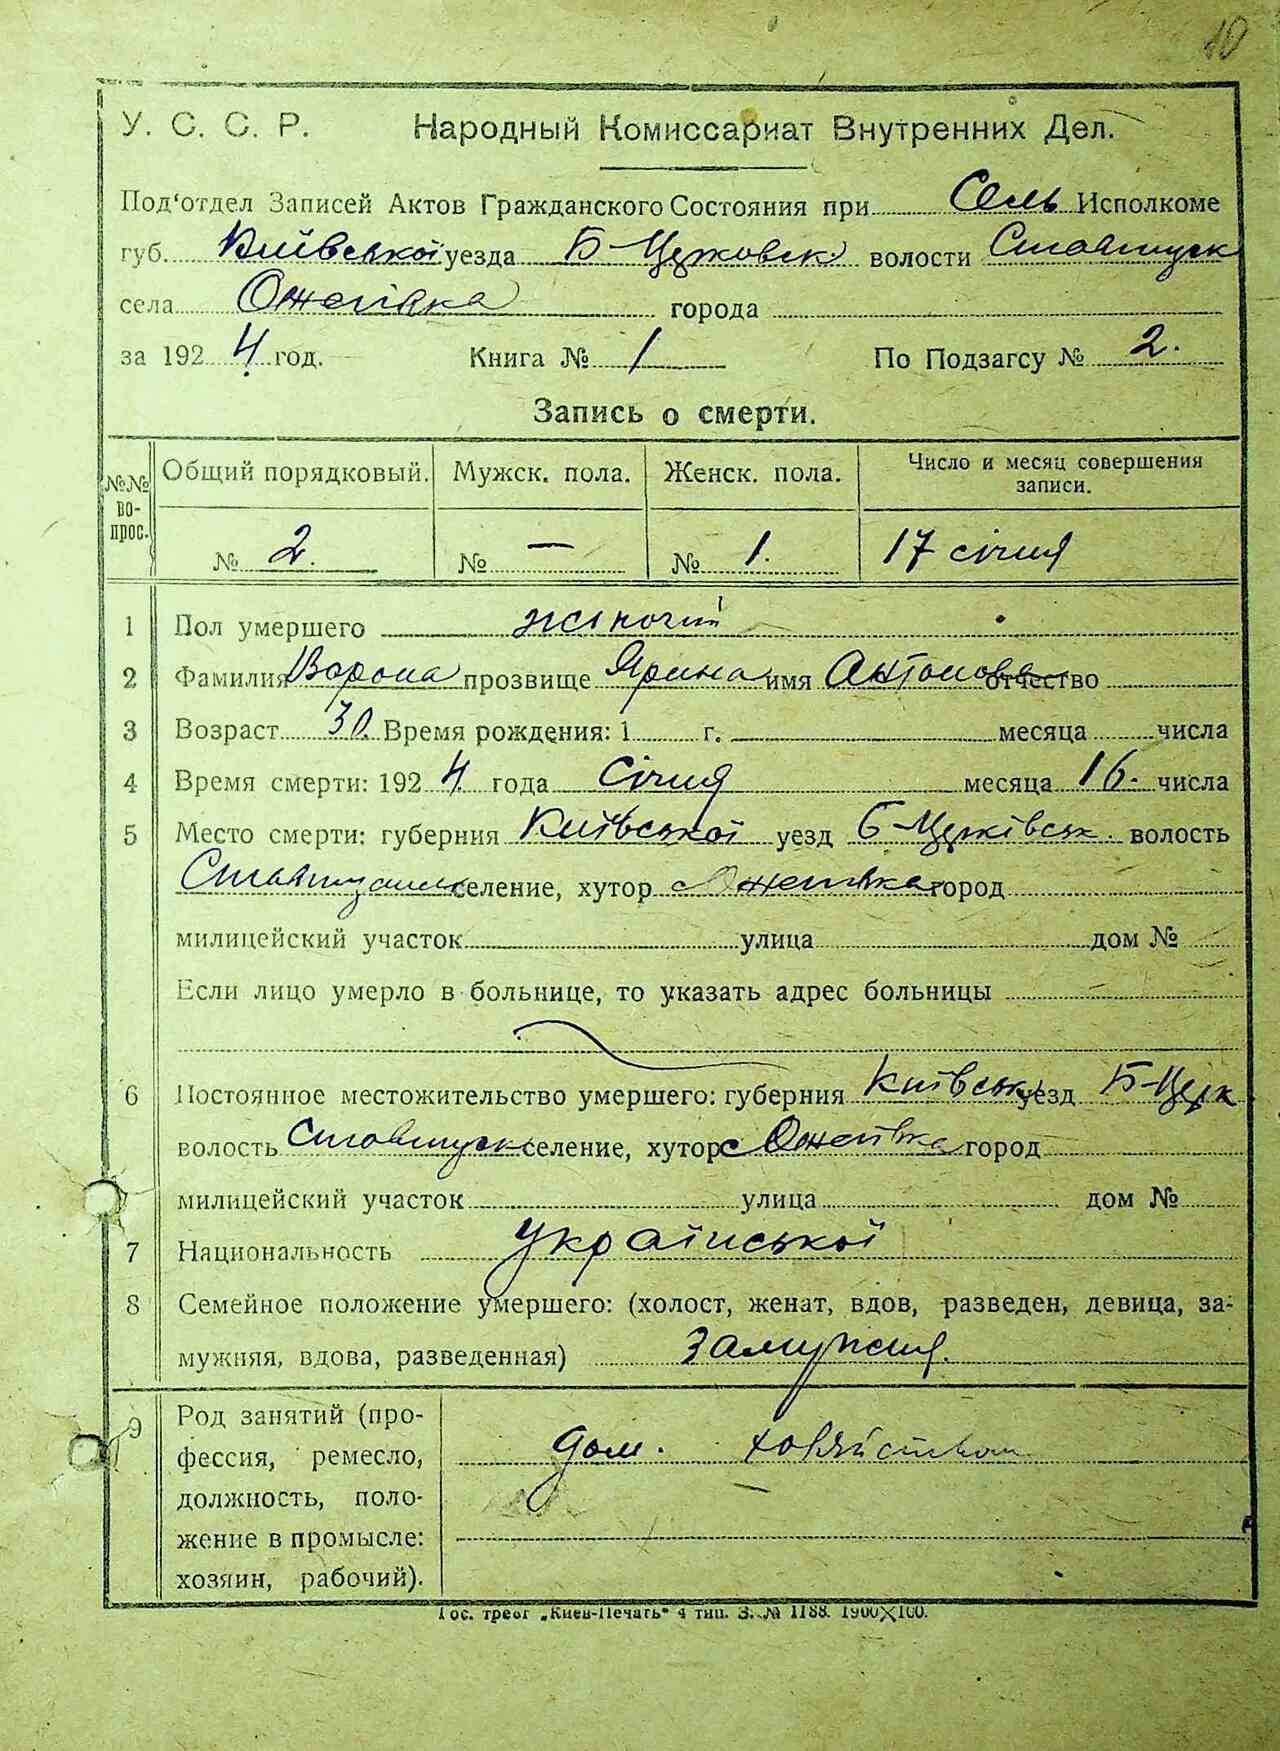 10
У. С. С. Р. Народный Комиссариат Внутренних Дел.
Под'отдел Записей Актов Гражданского Состояния при Сель Исполкоме
губ. Київської уезда Б-Церковск волости Ставищск
села Ожегівка города
за 1924 год. Книга № 1 По Подзагсу № 2.
Запись о смерти.
№№ вопрос. Общий порядковый. Мужск. пола. Женск. пола. Число и месяц совершения записи.
№ 2. № — № 1. 17 січня
1 Пол умершего жіночий
2 Фамилия Ворона прозвище Ярина имя Антонова отчество
3 Возраст 30. Время рождения: 1 г. месяца числа
4 Время смерти: 1924. года Січня месяца 16. числа
5 Место смерти: губерния Київської уезд Б-Церківськ. волость
селение, хутор с Ожегівка город
милицейский участок улица дом №
Если лицо умерло в больнице, то указать адрес больницы
6 Постоянное местожительство умершего: губерния Київськ уезд Б-Церк
волость Ставищск селение, хутор с Ожегівка город
милицейский участок улица дом №
7 Национальность української
8 Семейное положение умершего: (холост, женат, вдов, разведен, девица, за-
мужняя, вдова, разведенная) замужня.
9 Род занятий (про-
фессия, ремесло, дом. хозяйством
должность, поло-
жение в промысле:
хозяин, рабочий).
Гос. трест „Киев-Печать" 4 тип. З. № 1188. 1900×100.